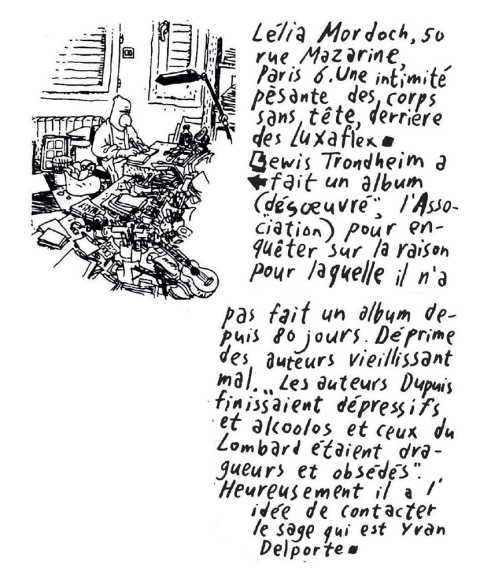 Lélia Mordoch, 50
rue Mazarine,
Paris 6. Une intimité
pèsante des corps
sans tête, derrière
des Luxaflex
Lewis Trondheim a
fait un album
("désœuvré", l'Asso-
ciation) pour en-
quêter sur la raison
pour laquelle il n'a
pas fait un album de-
puis 80 jours. Déprime
des auteurs vieillissant
mal... "Les auteurs Dupuis
finissaient dépressifs
et alcoolos et ceux du
Lombard étaient dra-
gueurs et obsédés".
Heureusement il a l'
idée de contacter
le sage qui est Yvan
Delporte